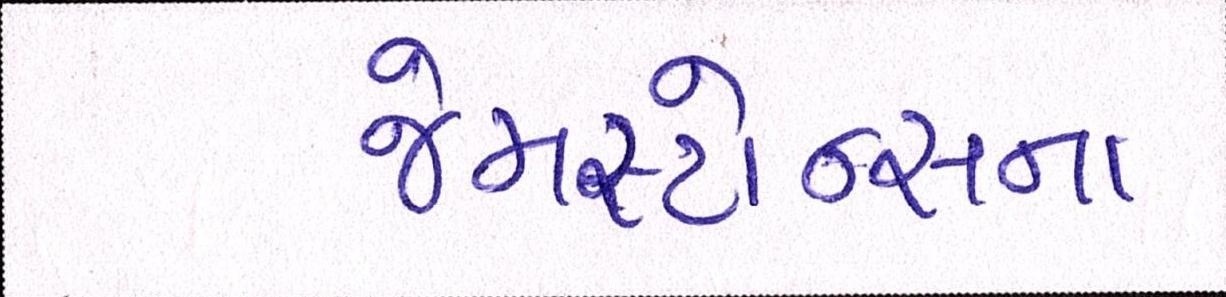 જેમસ્ટોન્સના